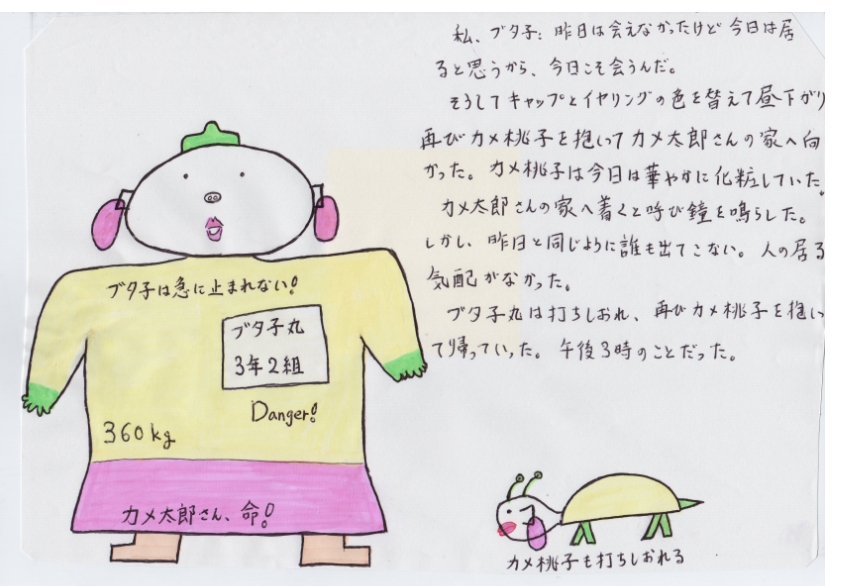 私、ブタ子：昨日は会えなかったけど今日は居
ると思うから、今日こそ会うんだ。
そうしてキャップとイヤリングの色を替えて昼下がり
再びカメ桃子を抱いてカメ太郎さんの家へ向
かった。カメ桃子は今日は華やかに化粧していた。
カメ太郎さんの家へ着くと呼び鐘を鳴らした。
しかし、昨日と同じように誰も出てこない。人の居る
気配がなかった。
ブタ子丸は打ちしおれ、再びカメ桃子を抱い
て帰っていった。午後3時のことだった。
ブタ子は急に止まれない！
ブタ子丸
3年2組
Danger!
360kg
カメ太郎さん、命！
カメ桃子も打ちしおれる